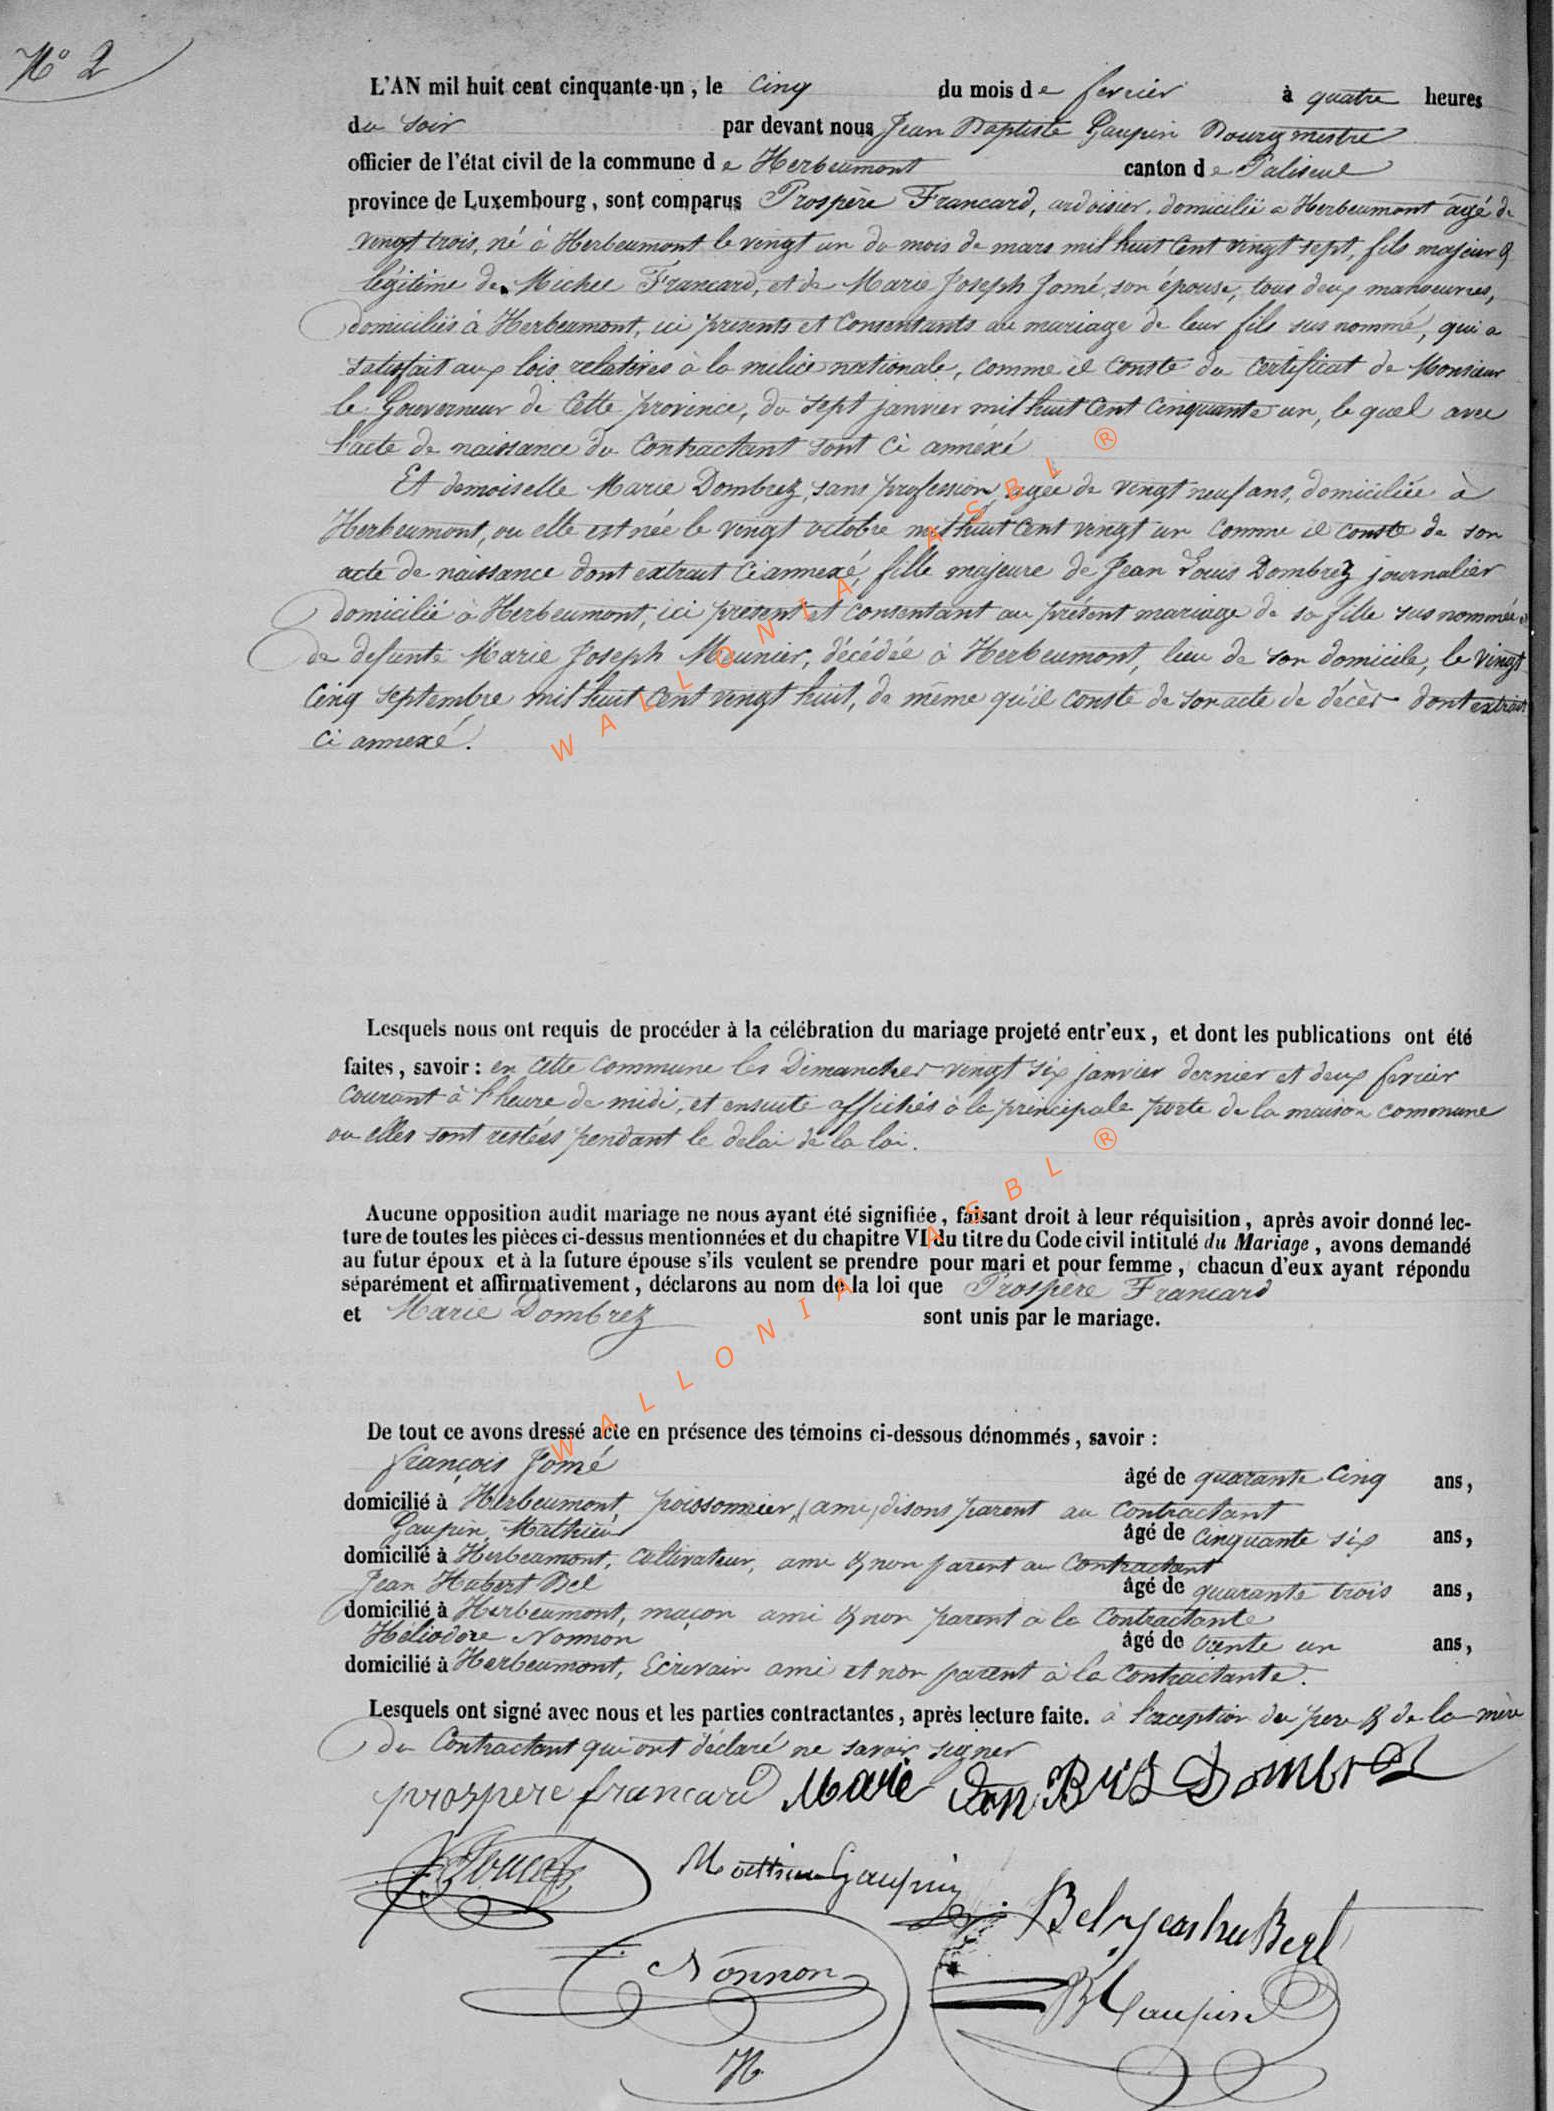 N° 2
L'AN mil huit cent cinquante-un, le cinq du mois de fevrier à quatre heures
du soir par devant nous Jean Baptiste Gaupin Bourgmestre
officier de l'état civil de la commune de Herbeumont canton de Paliseul
province de Luxembourg, sont comparus Prospère Francard, ardoisier, domicilié a Herbeumont âgé de
vingt trois, né à Herbeumont le vingt un du mois de mars mil huit cent vingt sept, fils majeur &
légitime de Michel Francard, et de Marie Joseph Jomé, son épouse, tous deux manoeuvres,
domiciliés à Herbeumont, ici presents et consentants au mariage de leur fils sus nommé, qui a
satisfait aux lois relatives à la milice nationale, comme il conste du certificat de Monsieur
le Gouverneur de cette province, du sept janvier mil huit cent cinquante un, le quel avec
l'acte de naissance du contractant sont ci annéxé
Et demoiselle Marie Dombrez, sans profession, agée de vingt neuf ans, domiciliée à
Herbeumont, ou elle est née le vingt octobre mil huit cent vingt un comme il conste de son
acte de naissance dont extrait ci annexé, fille majeure de Jean Louis Dombrez journalier
domicilié à Herbeumont, ici présent et consentant au présent mariage de sa fille sus nommée et
de defunte Marie Joseph Meunier, décédée à Herbeumont, lieu de son domicile, le vingt
cinq septembre mil huit cent vingt huit, de même qu'il conste de son acte de décès dont extrait
ci annexé.
Lesquels nous ont requis de procéder à la célébration du mariage projeté entr'eux, et dont les publications ont été
faites, savoir : en cette commune les Dimanches vingt six janvier dernier et deux fevrier
courant à l'heure de midi, et ensuite affichés à la principale porte de la maison commune
ou elles sont restées pendant le delai de la loi.
Aucune opposition audit mariage ne nous ayant été signifiée, faisant droit à leur réquisition, après avoir donné lec-
ture de toutes les pièces ci-dessus mentionnées et du chapitre VI du titre du Code civil intitulé du Mariage, avons demandé
au futur époux et à la future épouse s'ils veulent se prendre pour mari et pour femme, chacun d'eux ayant répondu
séparément et affirmativement, déclarons au nom de la loi que Prospère Francard
et Marie Dombrez sont unis par le mariage.
De tout ce avons dressé acte en présence des témoins ci-dessous dénommés, savoir :
françois Jomé âgé de quarante cinq ans,
domicilié à Herbeumont, poissonnier, (ami) disons parent au contractant
Gaupin, Mathieu âgé de cinquante six ans,
domicilié à Herbeumont, cultivateur, ami & non parent au contractant
Jean Hubert Bel âgé de quarante trois ans,
domicilié à Herbeumont, maçon ami & non parent à la contractante
Héliodore Nonnon âgé de trente un ans,
domicilié à Herbeumont, Ecrivain ami et non parent à la contractante.
Lesquels ont signé avec nous et les parties contractantes, après lecture faite. à l'exception du pere & de la mère
du contractant qui ont déclaré ne savoir signer
prospere francard Marie Dombrez
Mathieu Gaupin
Bel jean huBert
Nonnon
H
Gaupin
WALLONIA ASBL ®
WALLONIA ASBL ®